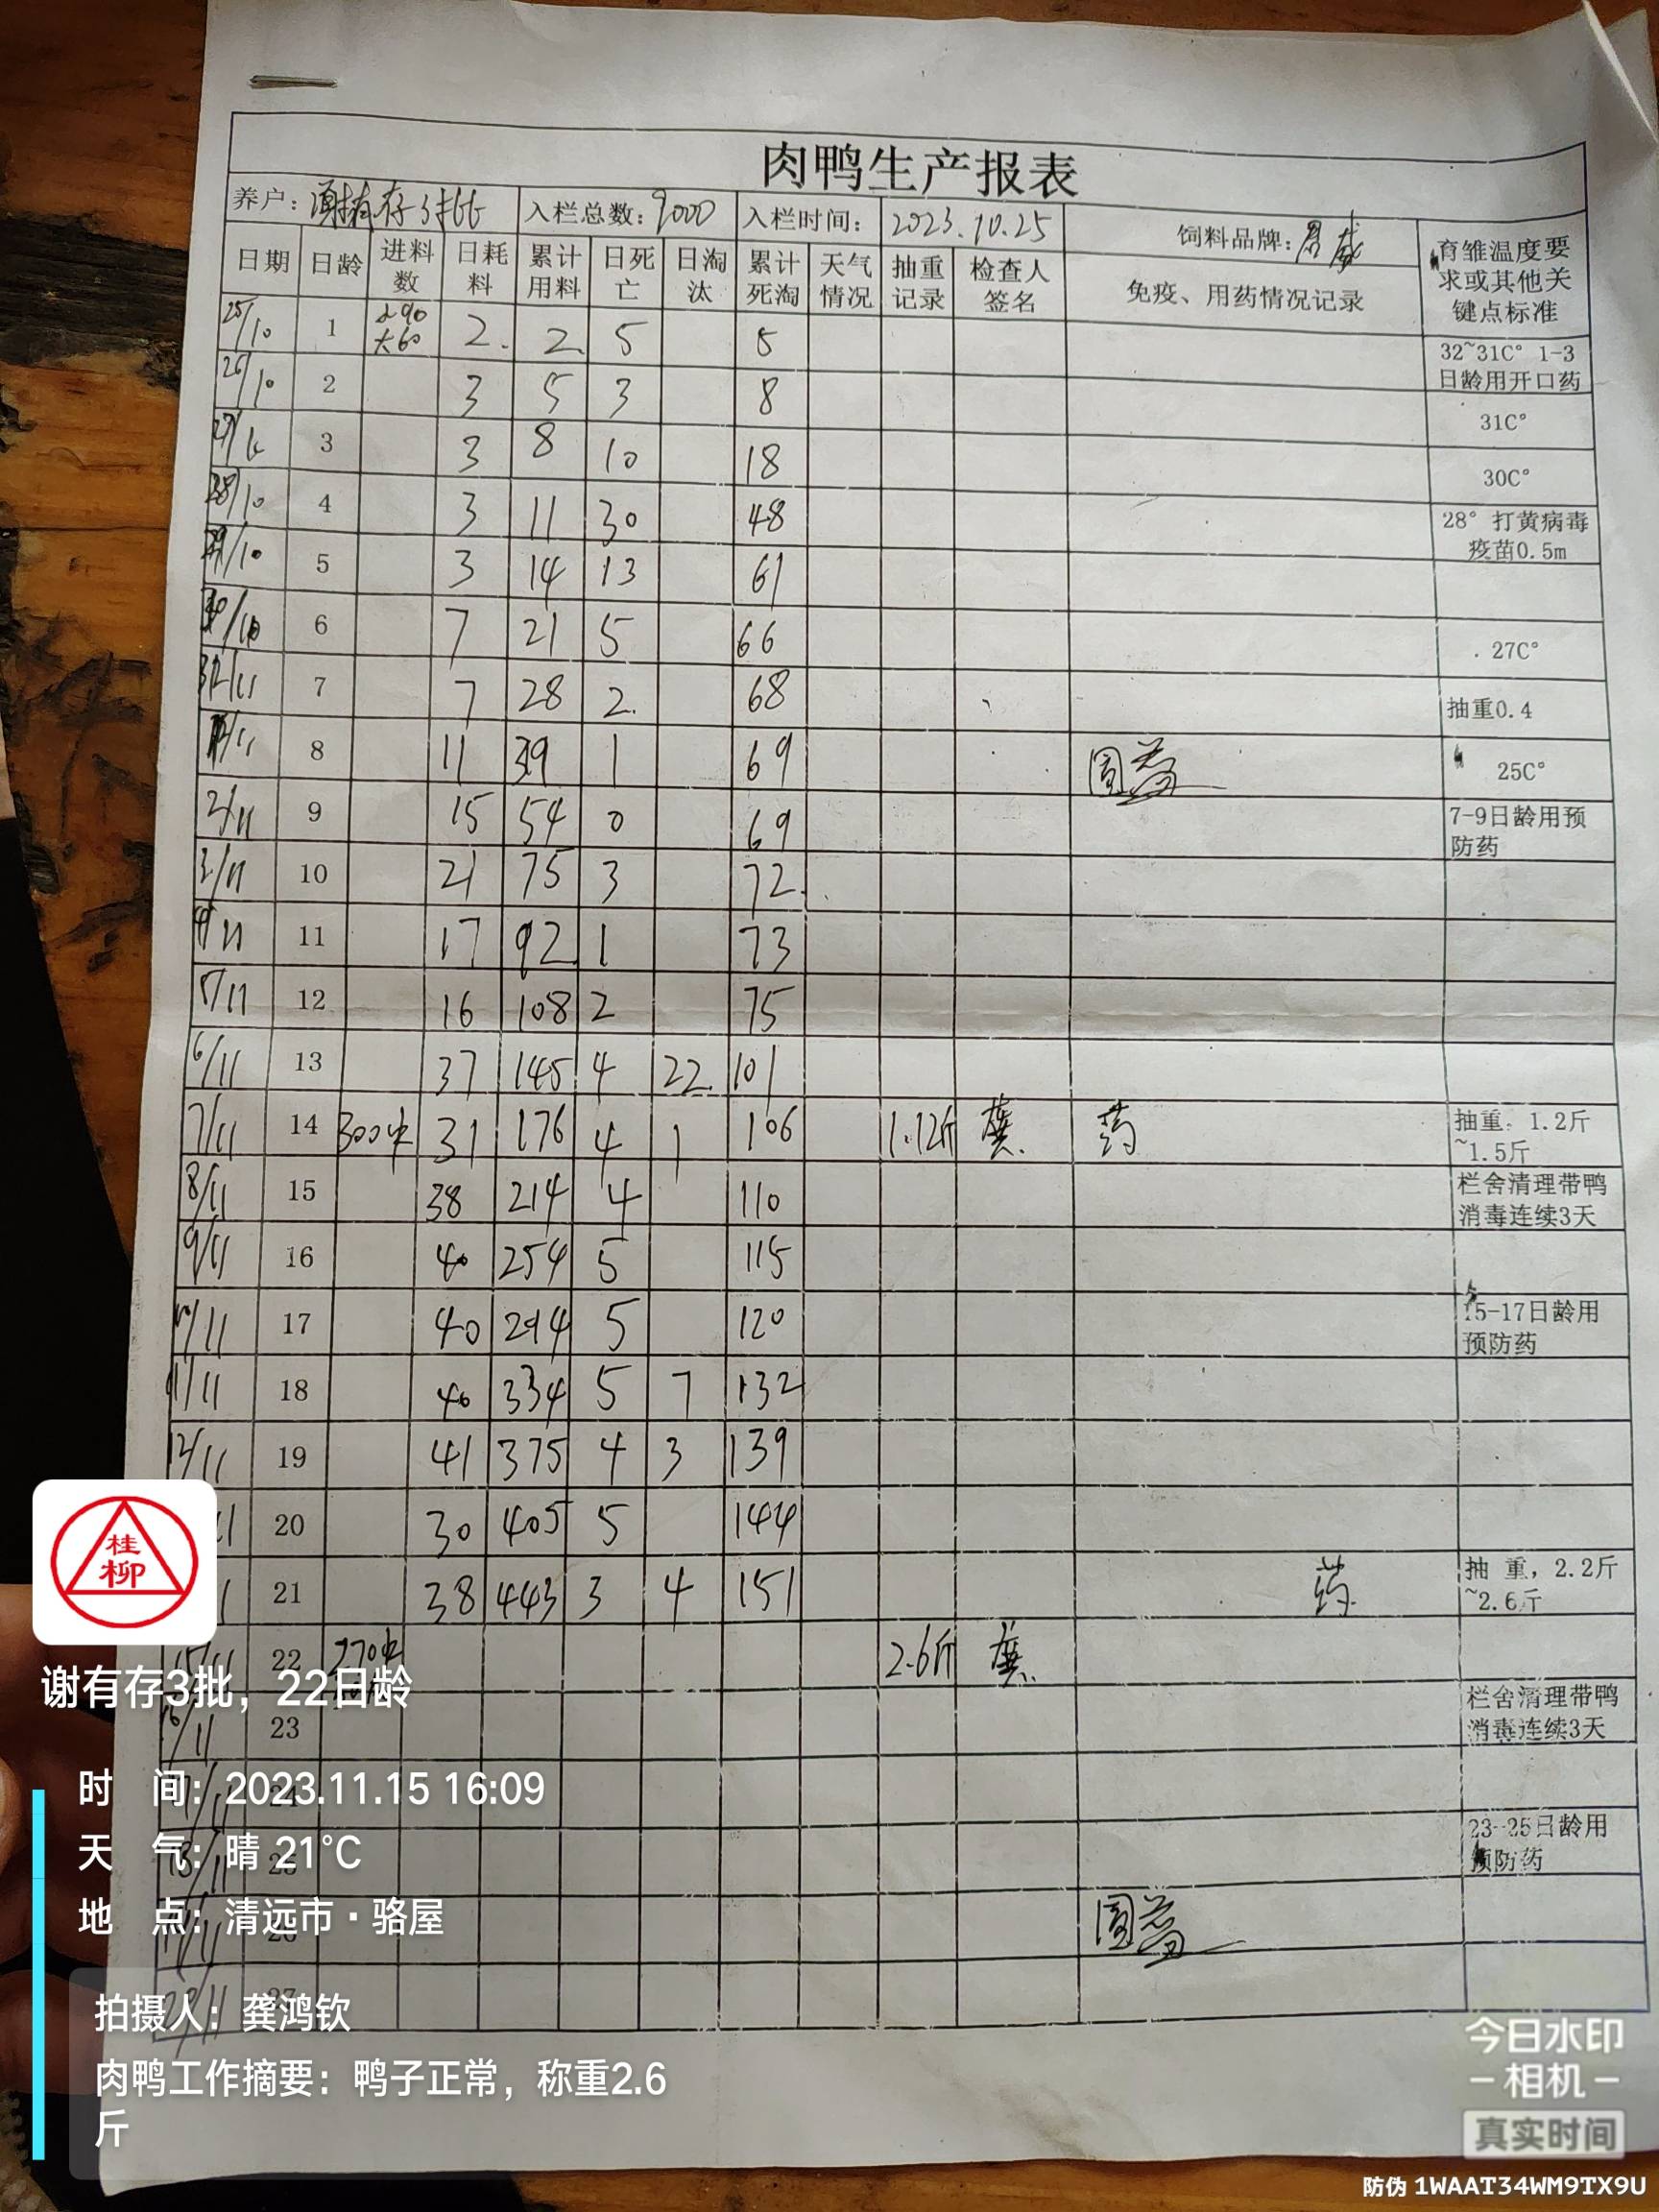 肉鸭生产报表
养户： 有存3批 入栏总数：9000 入栏时间： 2023.10.25 饲料品牌： 育雏温度要求或其他关键点标准
日期 日龄 进料数 日耗料 累计用料 日死亡 日淘汰 累计死淘 天气情况 抽重记录 检查人签名 免疫、用药情况记录
25/10 1 大60 2. 2. 5 5 32~31C° 1-3日龄用开口药
26/10 2 3 5 3 8 31C°
27/10 3 3 8 10 18 30C°
28/10 4 3 11 30 48 28° 打黄病毒疫苗0.5m
29/10 5 3 14 13 61
30/10 6 7 21 5 66 27C°
7 7 28 2. 68 抽重0.4
8 11 39 1 69 25C°
2/11 9 15 54 0 69 7-9日龄用预防药
3/11 10 21 75 3 72.
4/11 11 17 92 1 73
5/11 12 16 108 2 75
6/11 13 37 145 4 22. 101
7/11 14 300中 31 176 4 1 106 1.12斤 龚 药 抽重，1.2斤~1.5斤
8/11 15 38 214 4 110 栏舍清理带鸭消毒连续3天
9/11 16 40 254 5 115
10/11 17 40 294 5 120 15-17日龄用预防药
11/11 18 40 334 5 7 132
12/11 19 41 375 4 3 139
20 30 405 5 144
21 38 443 3 4 151 药 抽 重，2.2斤~2.6斤
15/11 22 270中 2.6斤 龚
16/11 23 栏舍清理带鸭消毒连续3天
24
25 23-25日龄用预防药
26
27
桂柳
谢有存3批，22日龄
时 间：2023.11.15 16:09
天 气：晴 21°C
地 点：清远市·骆屋
拍摄人：龚鸿钦
肉鸭工作摘要：鸭子正常，称重2.6
斤
今日水印
相机
真实时间
防伪 1WAAT34WM9TX9U